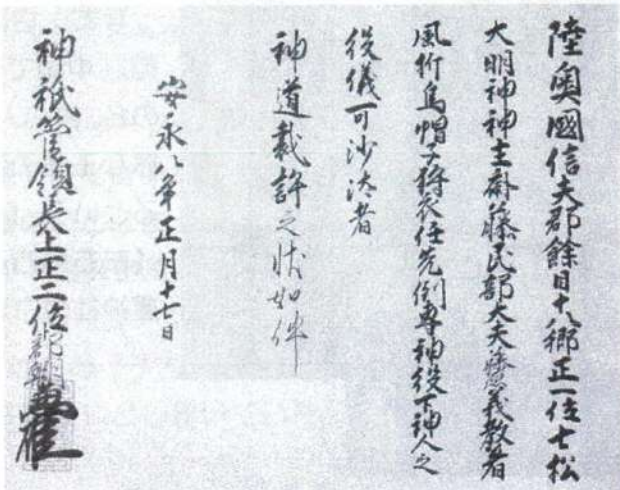 陸奥國信夫郡餘目十八郷正一位七松
大明神神主斎藤民部大夫藤原義教着
風折烏帽子狩衣任先例専神役下神人之
役儀可沙汰者
神道裁許之状如件
安永八年正月十七日
神祇管領長上正二位